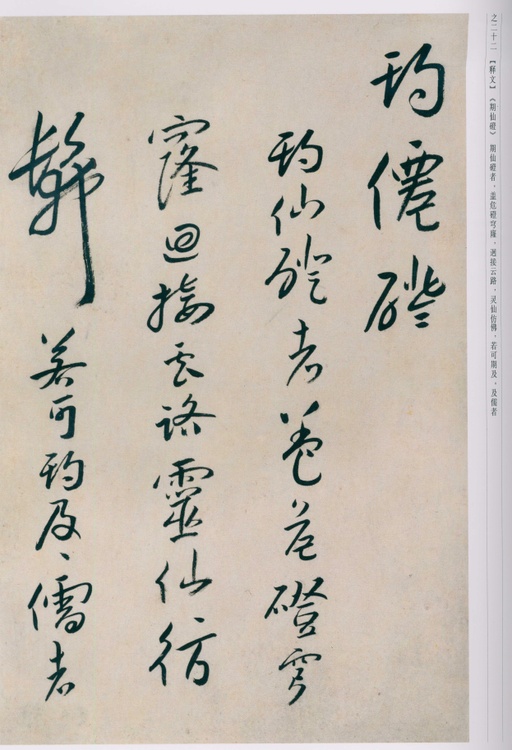 之二十二 【释文】《期仙磴》 期仙磴者，盖危磴穹窿，迥接云路，灵仙仿佛，若可期及。及儒者
期僊磴
期仙磴者蓋危磴穹
窿迴接云路靈仙彷
彿若可期及〻儒者